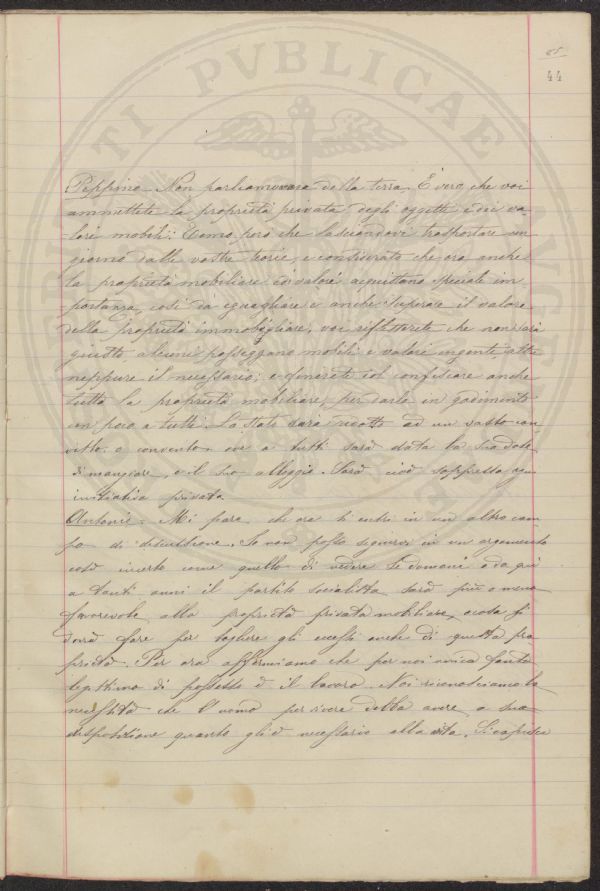 85
44
Peppino - Non parliamo ora della terra. È vero che voi
ammettete la proprietà privata degli oggetti e dei va-
lori mobili. Temo però che lasciandovi trasportare un
giorno dalle vostre teorie, e considerato che ora anche
la proprietà mobiliare ed i valori acquistano speciale im-
portanza, così da eguagliare e anche superare il valore
della proprietà immobigliare, voi rifletterete che non sarà
giusto alcuni posseggano mobili e valori ingenti, altri
neppure il necessario; e finirete col confiscare anche
tutta la proprietà mobiliare, per darla in godimento
un poco a tutti. Lo Stato sarà ridotto ad un vasto con-
vitto, o convento, ove a tutti sarà data la sua dose
di mangiare, e il suo alloggio. Sarà cioè soppressa ogni
iniziativa privata.
Antonio - Mi pare che ora ti entri in un altro cam-
po di discussione. Io non posso seguirvi in un argomento
così incerto come quello di vedere se domani o da qui
a tanti anni il partito socialista sarà più o meno
favorevole alla proprietà privata mobiliare, e cosa si
dovrà fare per togliere gli eccessi anche di questa pro
prietà. Per ora affermiamo che per noi unica fonte
legittima di possesso è il lavoro. Noi riconosciamo la
necessità che l'uomo per vivere debba avere a sua
disposizione quanto gli è necessario alla vita. Si capisce